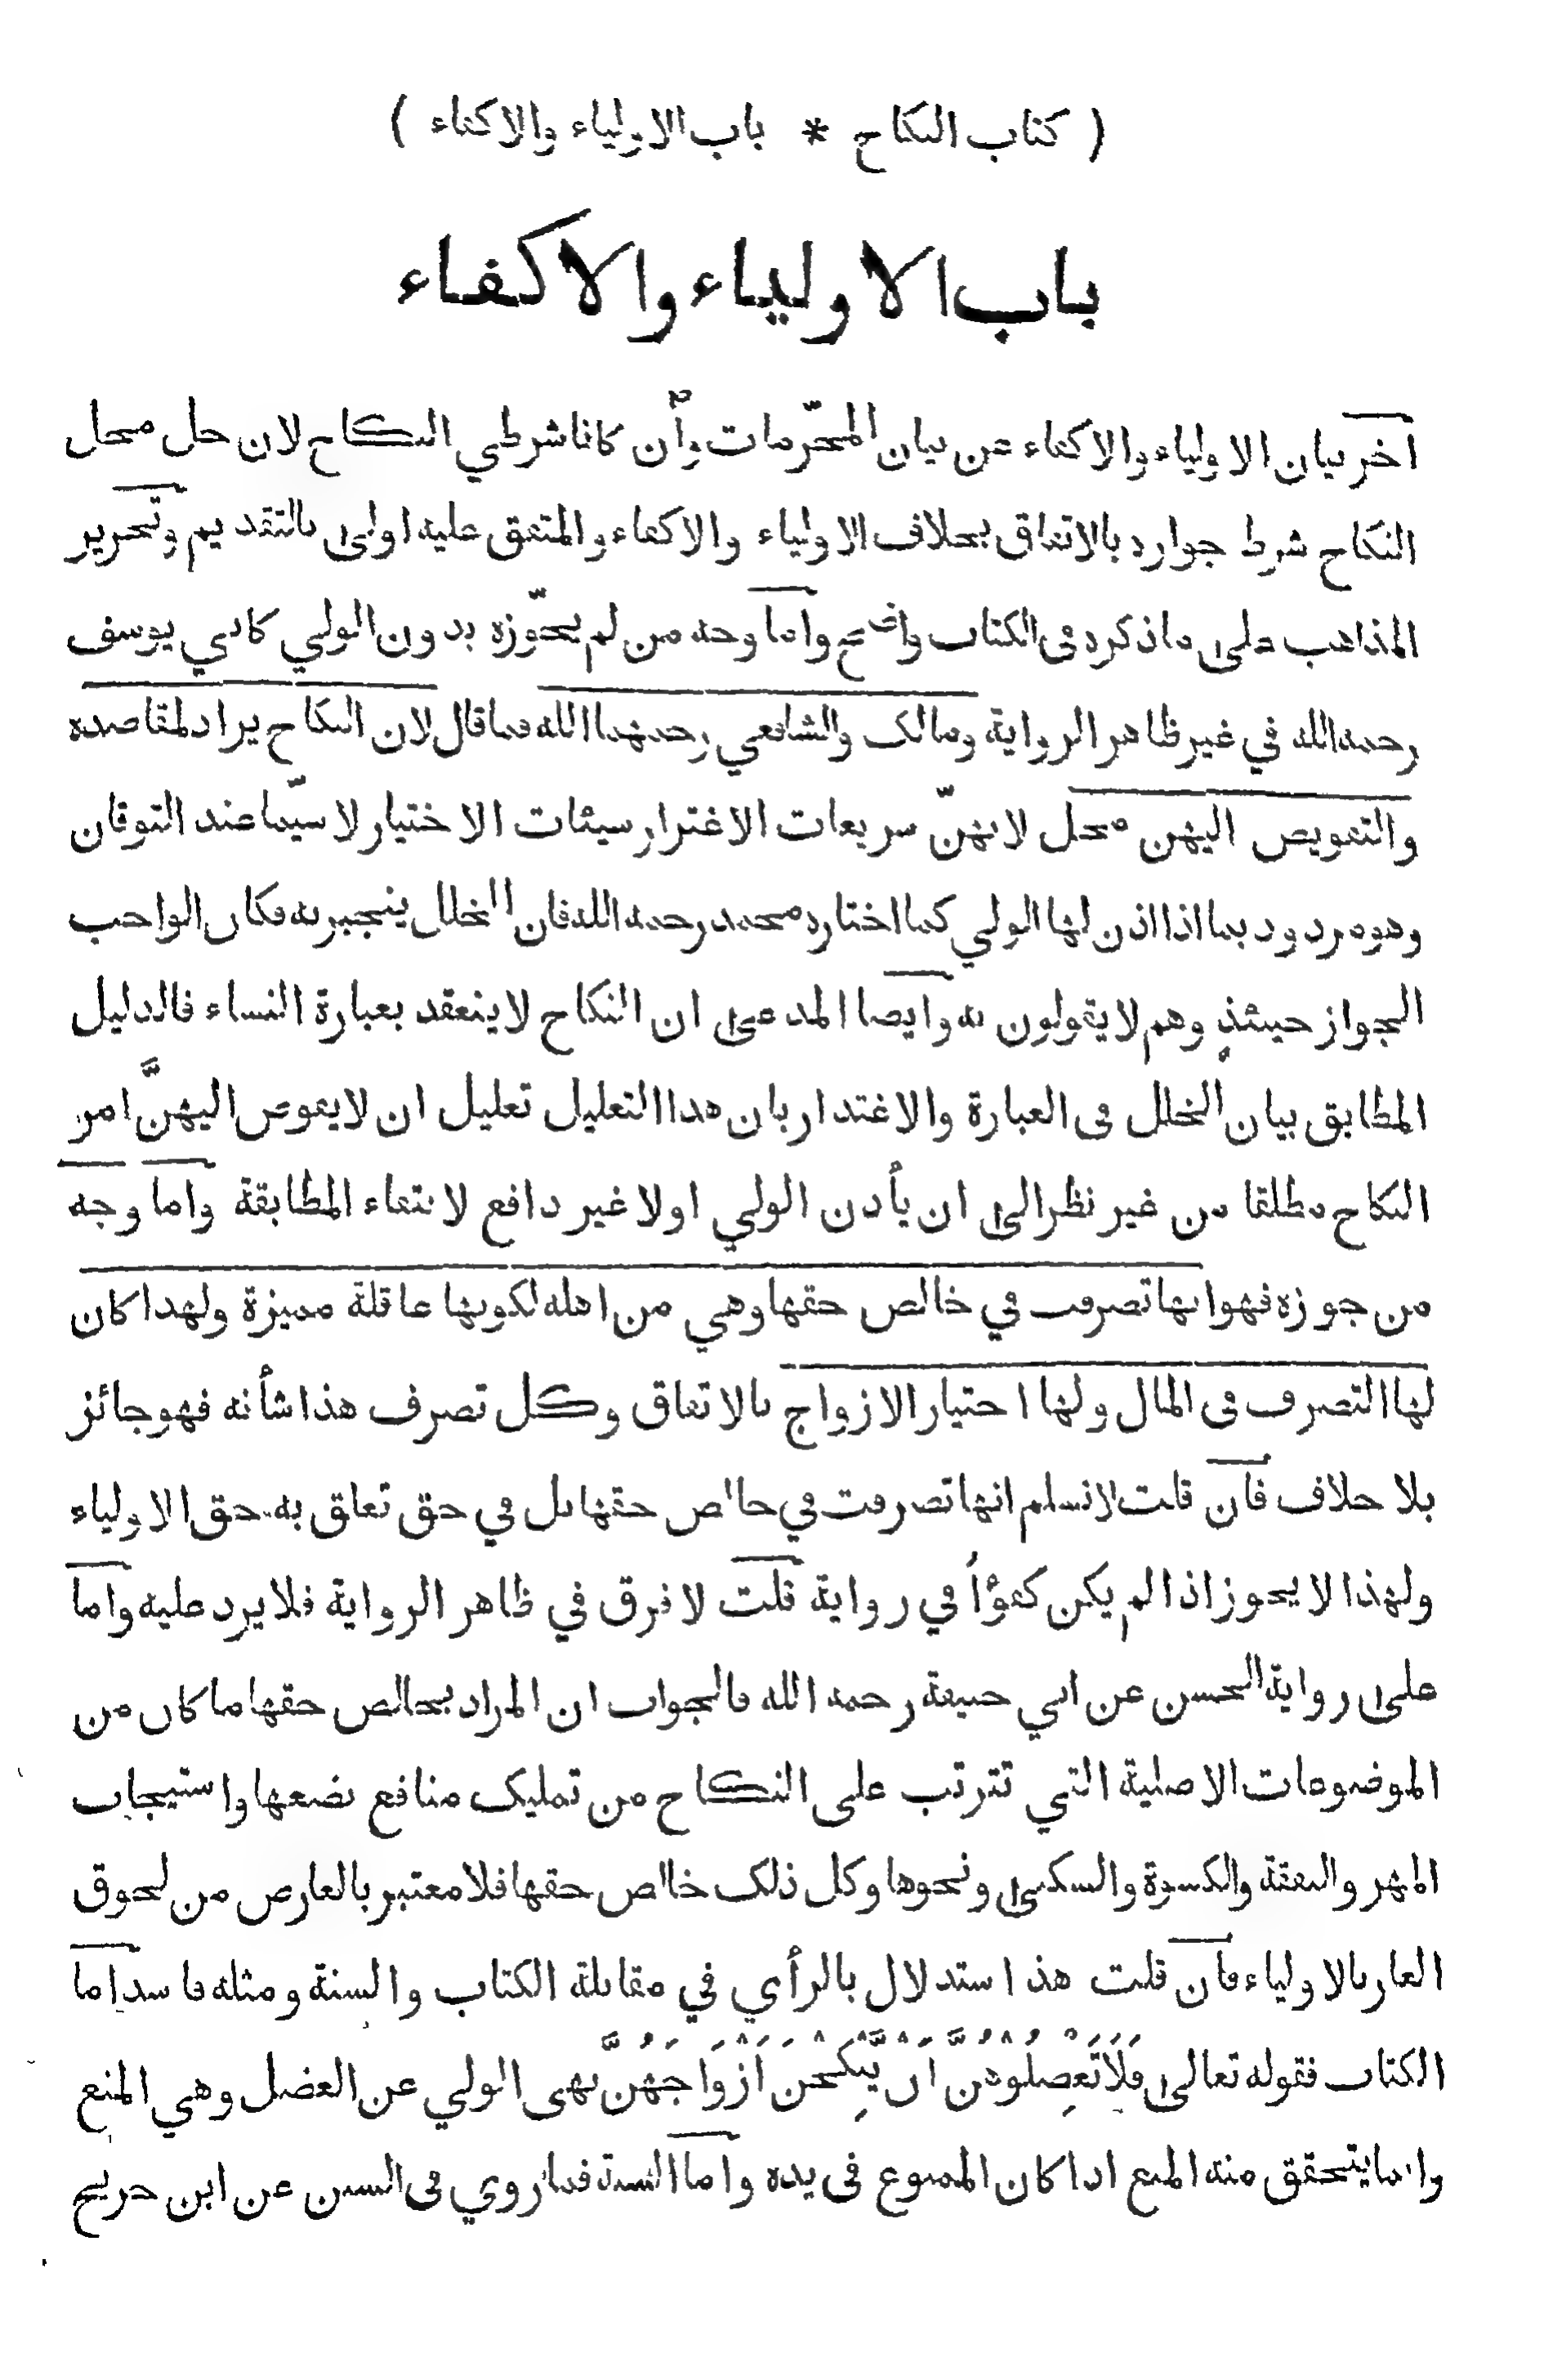 ( كتاب النكاح * باب الاولياء والاكفاء )
باب الاولياء والاكفاء
اخر بيان الاولياء والاكفاء عن بيان المحرّمات وأن كانا شرطي النكاح لان حل محل
النكاح شرط جوازه بالاتفاق بخلاف الاولياء والاكفاء والمتفق عليه اولى بالتقديم وتحرير
المذاهب على ما ذكره في الكتاب واضح واما وجه من لم يجوّزه بدون الولي كابي يوسف
رحمه الله في غير ظاهر الرواية ومالك والشافعي رحمهما الله فما قال لان النكاح يراد لمقاصده
والتفويض اليهن مخل لانهنّ سريعات الاغترار سيئات الاختيار لا سيّما عند التوقان
وهو مردود بما اذا اذن لها الولي كما اختاره محمد رحمه الله فان الخلل ينجبر به فكان الواجب
الجواز حينئذٍ وهم لا يقولون به وايضا المدعى ان النكاح لا ينعقد بعبارة النساء فالدليل
المطابق بيان الخلل في العبارة والاعتذار بان هذا التعليل تعليل ان لا يفوض اليهنَّ امر
النكاح مطلقا من غير نظر الى ان يأذن الولي اولا غير دافع لانتفاء المطابقة واما وجه
من جوزه فهو انها تصرفت في خالص حقها وهي من اهله لكونها عاقلة مميزة ولهذا كان
لها التصرف في المال ولها اختيار الازواج بالاتفاق وكل تصرف هذا شأنه فهو جائز
بلا خلاف فان قلت لا نسلم انها تصرفت في خالص حقها بل في حق تعلق به حق الاولياء
ولهذا لا يجوز اذا لم يكن كفؤاً في رواية قلت لا فرق في ظاهر الرواية فلا يرد عليه واما
على رواية الحسن عن ابي حنيفة رحمه الله فالجواب ان المراد بخالص حقها ما كان من
الموضوعات الاصلية التي تترتب على النكاح من تمليك منافع بضعها واستيجاب
المهر والنفقة والكسوة والسكنى ونحوها وكل ذلك خالص حقها فلا معتبر بالعارض من لحوق
العار بالاولياء فان قلت هذا استدلال بالرأي في مقابلة الكتاب والسنة ومثله فاسد اما
الكتاب فقوله تعالى فَلَا تَعْضِلُوْهُنَّ اَنْ يَّنْكِحْنَ اَزْوَاجَهُنَّ نهى الولي عن العضل وهي المنع
وانما يتحقق منه المنع اذا كان الممنوع في يده واما السنة فما روي في السنن عن ابن جريج